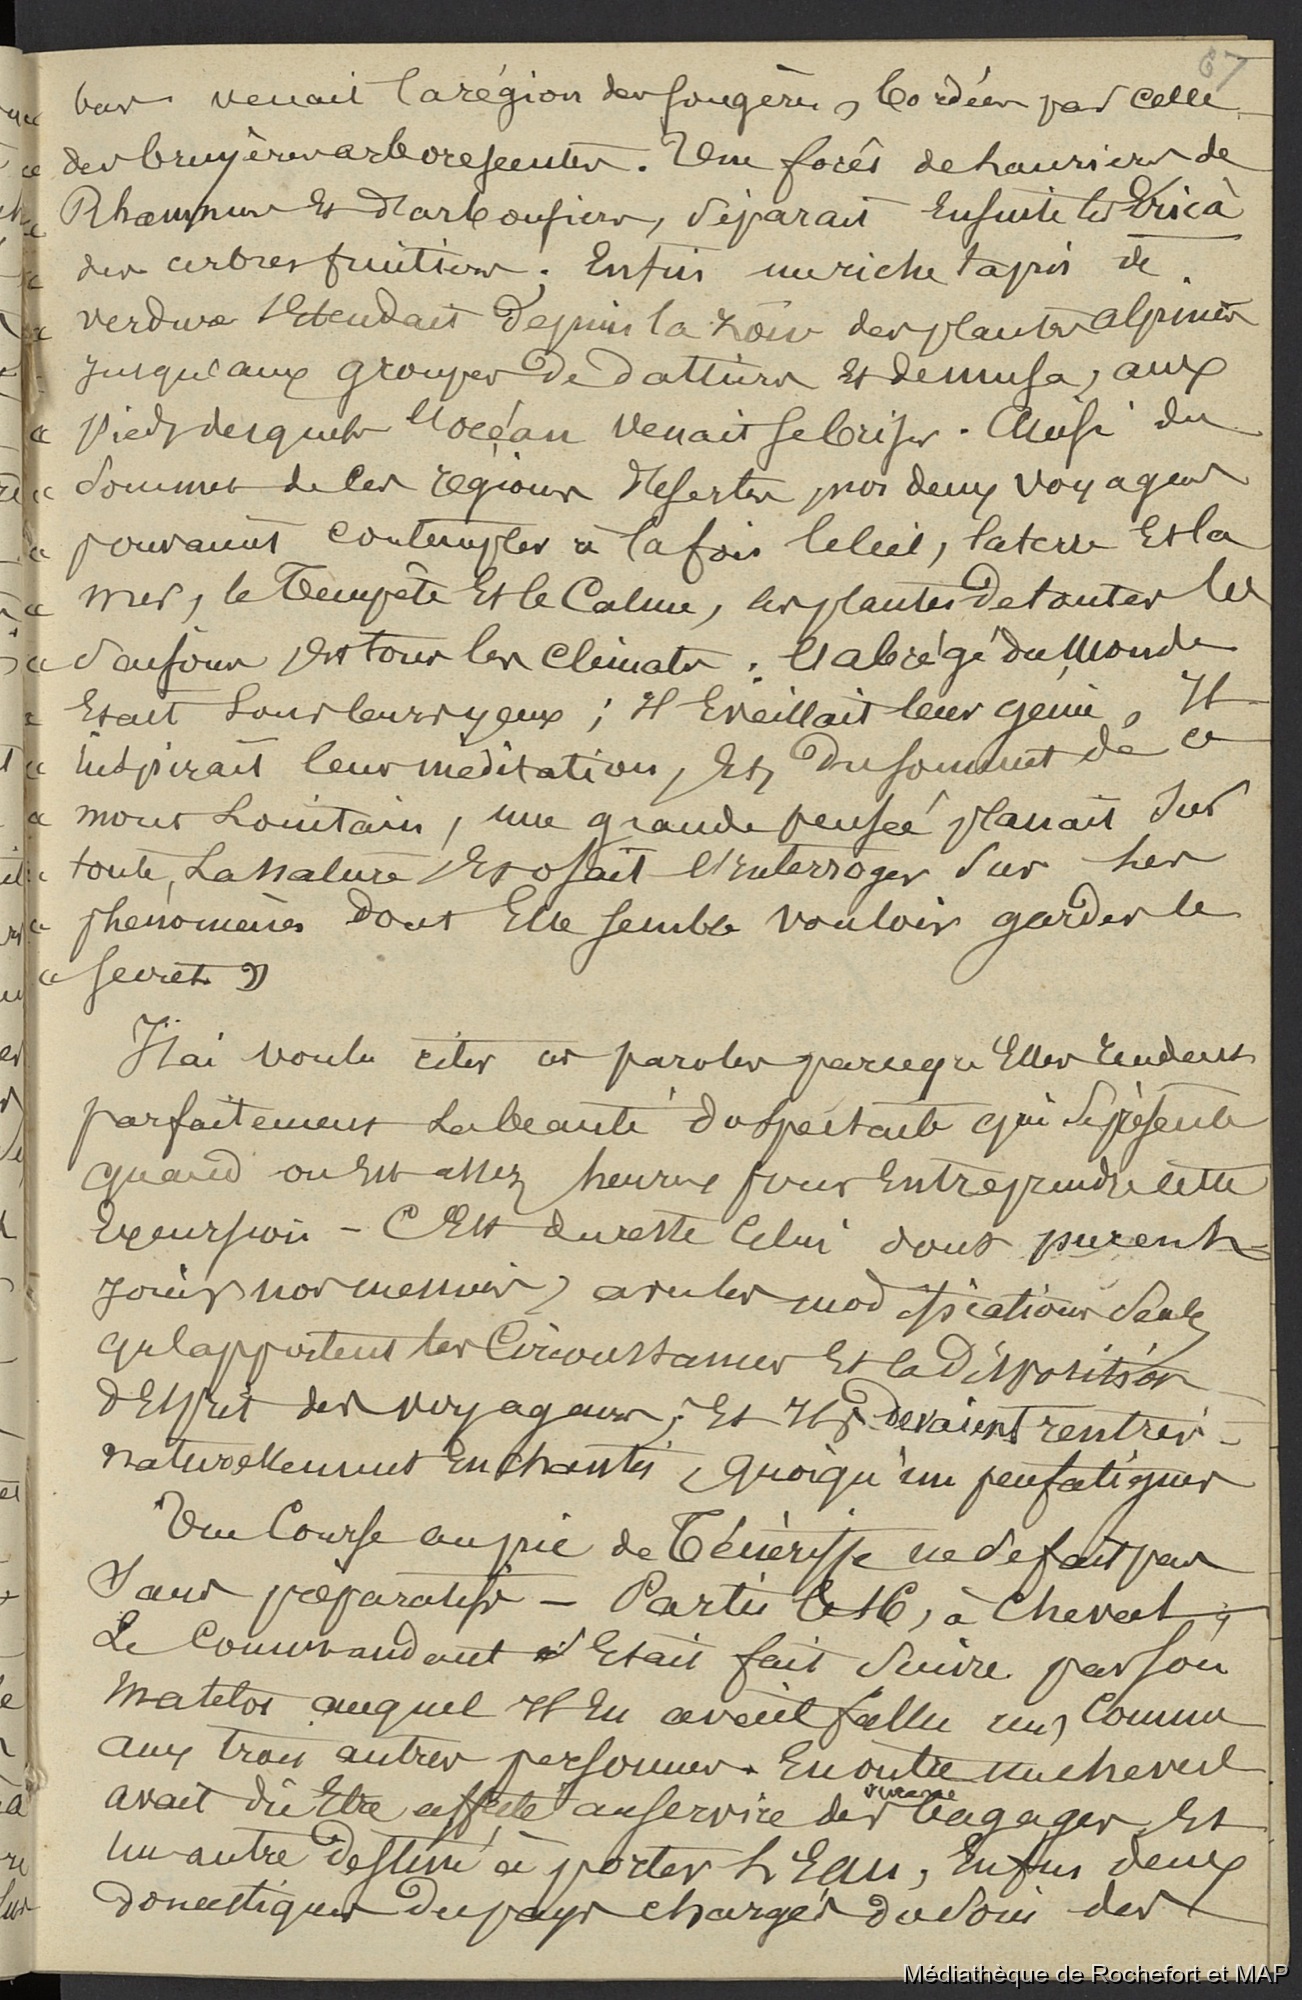 67
bas venait la région des fougères, bordées par celle
« des bruyères arborescentes. Une forêt de lauriers de
« Rhamnus et d'arbousiers, séparait ensuite les Erica
« des arbres fruitiers. Enfin un riche tapis de
« verdure s'étendait depuis la zone des plantes alpines
jusqu'aux groupes de dattiers et de musa, aux
« pieds desquels l'océan venait se briser. Ainsi du
« sommet de ces régions désertes, nos deux voyageurs
« pouvaient contempler à la fois le ciel, la terre et la
« mer, la Tempête et le Calme, les plantes de toutes les
« saisons et tous les climats. L'abrégé du Monde
« était sous leurs yeux ; il éveillait leur génie, il
« inspirait leur méditation, et, du sommet de ce
« mont lointain, une grande pensée planait sur
« toute la nature et osait l'interroger sur les
« phénomènes dont elle semble vouloir garder le
« secret »
J'ai voulu citer ces paroles parcequ'elles rendent
parfaitement la beauté du spectacle qui se présente
quand on est assez heureux pour entreprendre cette
excursion – C'est du reste celui dont purent
jouir nos messieurs, avec les modifications seules
qu'apportent les circonstances et la disposition
d'esprit des voyageurs, et ils devaient rentrer
naturellement enchantés, quoiqu'un peu fatigués
Une course au pic de Ténériffe ne se fait pas
sans préparatifs – Partis le 16, à cheval,
le Commandant s'était fait suivre par son
matelot auquel il en avait fallu un, comme
aux trois autres personnes. En outre un cheval
avait dû être affecté au service des bagages et
un autre destiné à porter l'eau, Enfin deux
domestiques du pays chargés du soin des
Médiathèque de Rochefort et MAP